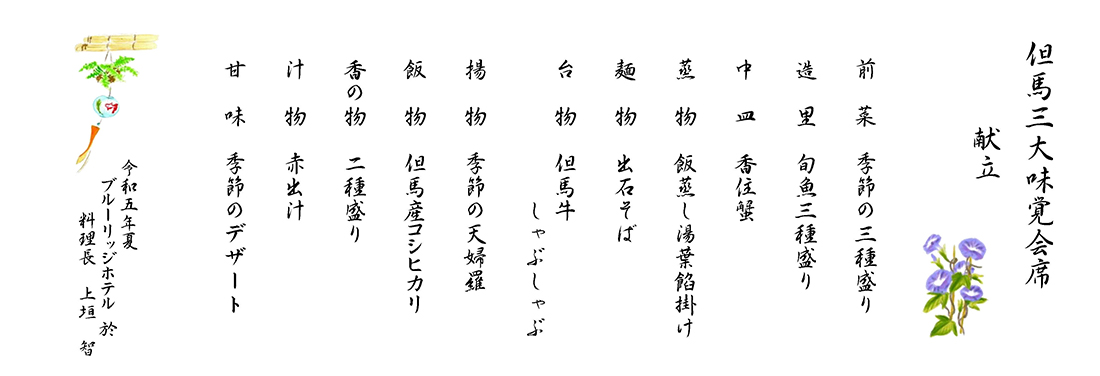 但馬三大味覚会席
献立
前菜 季節の三種盛り
造里 旬魚三種盛り
中皿 香住蟹
蒸物 飯蒸し湯葉餡掛け
麺物 出石そば
台物 但馬牛
しゃぶしゃぶ
揚物 季節の天婦羅
飯物 但馬産コシヒカリ
香の物 二種盛り
汁物 赤出汁
甘味 季節のデザート
令和五年夏
ブルーリッジホテル 於
料理長 上垣 智